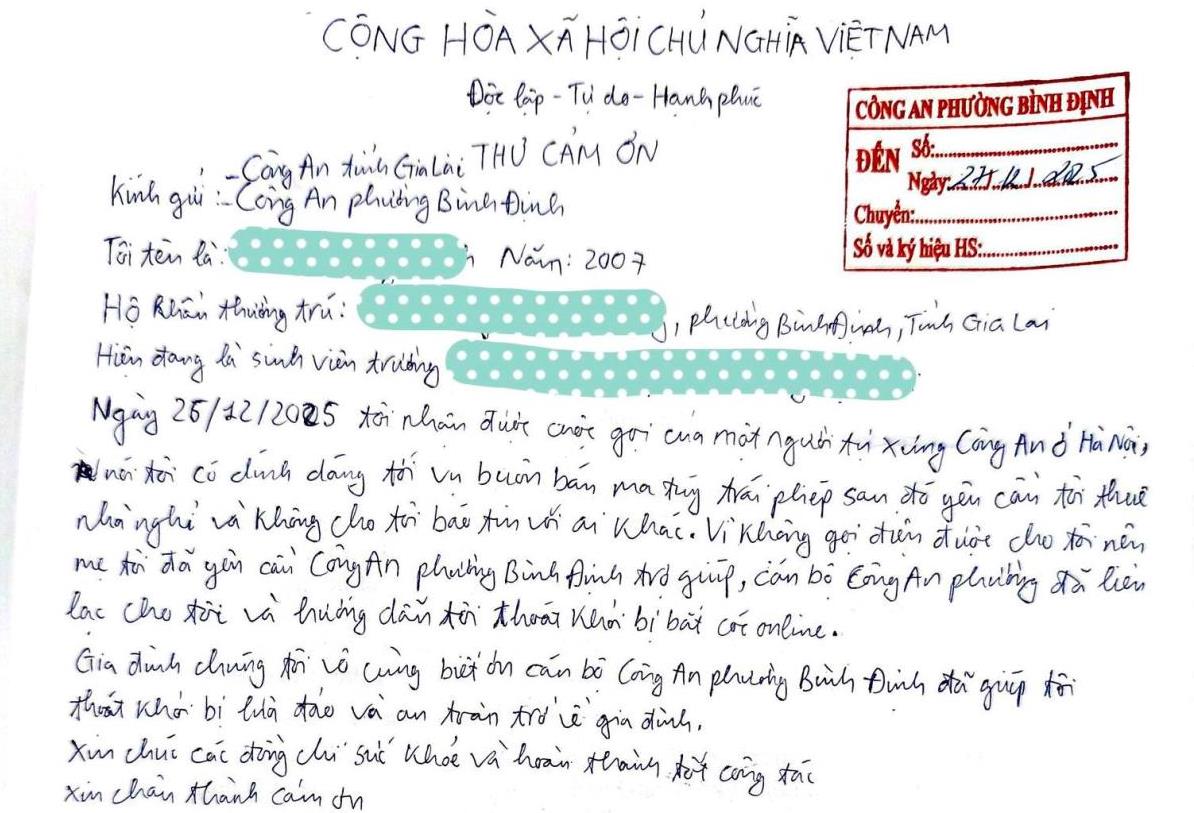 CỘNG HÒA XÃ HỘI CHỦ NGHĨA VIỆT NAM
Độc lập - Tự do - Hạnh phúc
THƯ CẢM ƠN
Kính gửi : - Công An tỉnh Gia Lai
- Công An phường Bình Định
CÔNG AN PHƯỜNG BÌNH ĐỊNH
ĐẾN Số:
Ngày: 27/12/2025
Chuyển:
Số và ký hiệu HS:
Tôi tên là: Năm: 2007
Hộ khẩu thường trú: , phường Bình Định, Tỉnh Gia Lai
Hiện đang là sinh viên trường
Ngày 26/12/2025 tôi nhận được cuộc gọi của một người tự xưng Công An ở Hà Nội,
nói tôi có dính dáng tới vụ buôn bán ma túy trái phép sau đó yêu cầu tôi thuê
nhà nghỉ và không cho tôi báo tin với ai khác. Vì không gọi điện được cho tôi nên
mẹ tôi đã yêu cầu Công An phường Bình Định trợ giúp, cán bộ Công An phường đã liên
lạc cho tôi và hướng dẫn tôi thoát khỏi bị bắt cóc online.
Gia đình chúng tôi vô cùng biết ơn cán bộ Công An phường Bình Định đã giúp tôi
thoát khỏi bị lừa đảo và an toàn trở về gia đình.
Xin chúc các đồng chí sức khỏe và hoàn thành tốt công tác
Xin chân thành cảm ơn